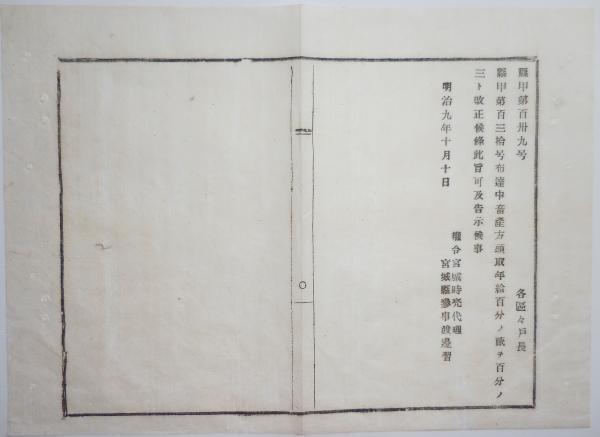 縣甲第百卅九号
各區々戸長
縣甲第百三拾号布達中畜產方頭取年給百分ノ貳ヲ百分ノ
三ト改正候條此旨可及告示候事
明治九年十月十日
權令宮城時亮代理
宮城縣參事渡邊習